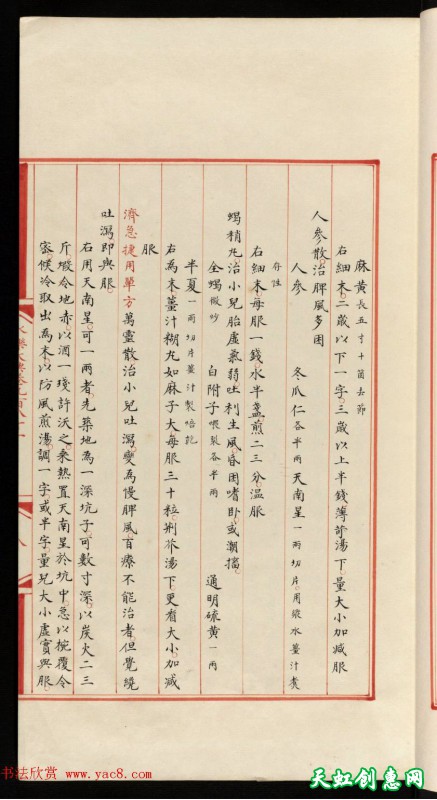 麻黄長五寸十箇去節
右細末二歳以下一字三歳以上半錢薄荷湯下量大小加減服
人參散治脾風多困
人參 冬瓜仁各半兩天南星一兩切片用漿水薑汁煮
存性
右細末每服一錢水半盞煎二三分温服
蝎梢丸治小兒胎虛氣弱吐利生風昏困嗜卧或潮搐
全蝎微炒 白附子煨製各半兩 通明硫黄一兩
半夏一兩切片薑汁製焙乾
右為末薑汁糊丸如麻子大每服三十粒荆芥湯下更看大小加減
服
濟急捷用單方萬靈散治小兒吐瀉變為慢脾風百療不能治者但覺繞
吐瀉即與服
右用天南星可一兩者先築地為一深坑子可數寸深以炭火二三
斤煅令地赤以酒一琖許沃之乘熱置天南星於坑中急以椀覆令
密候冷取出為末以防風煎湯調一字或半字量兒大小虛實與服
书法欣赏 www.yac8.com
天虹创意网